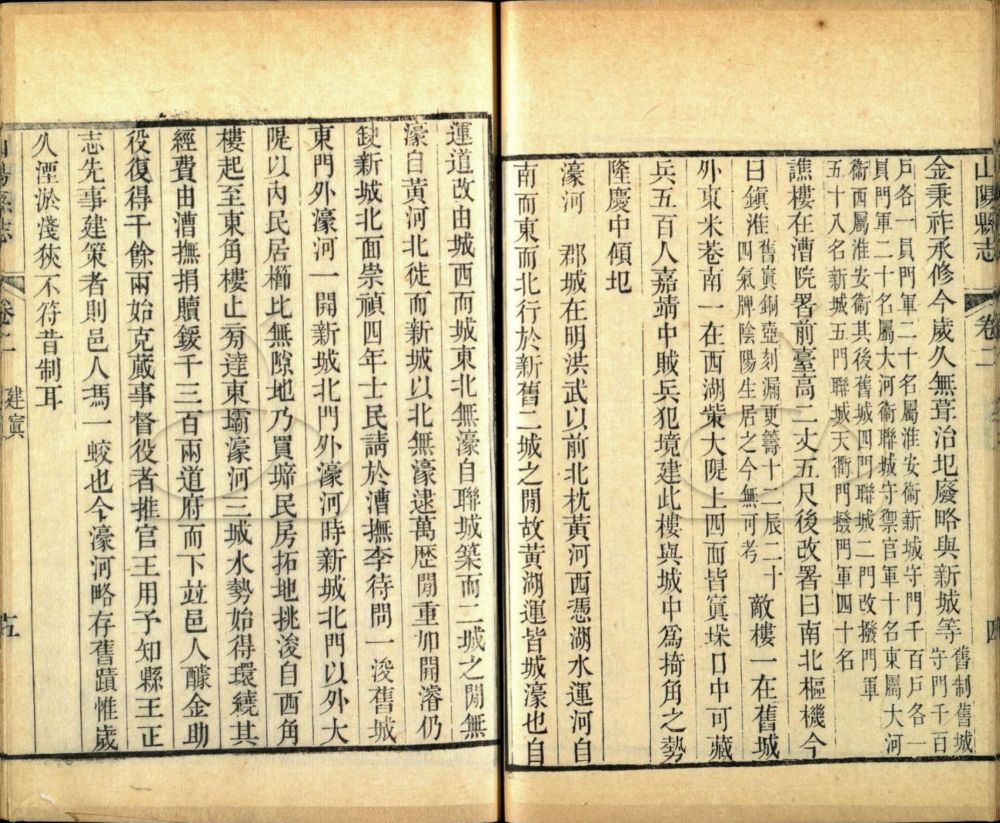 山陽縣志
卷二
四
金秉祚承修今歲久無葺治圮廢略與新城等舊制舊城守門千百
戶各一員門軍二十名屬淮安衞新城守門千百戶各一
員門軍二十名屬大河衞聯城守禦官軍十名東屬大河
衞西屬淮安衞其後舊城四門聯城二門改撥門軍
五十八名新城五門聯城天衢門撥門軍四十名
譙樓在漕院署前臺高二丈五尺後改署曰南北樞機今
曰鎭淮舊寘銅壺刻漏更籌十二辰二十四氣牌陰陽生居之今無可考敵樓一在舊城
外東米巷南一在西湖觜大隄上四面皆寘垛口中可藏
兵五百人嘉靖中賊兵犯境建此樓與城中爲掎角之勢
隆慶中傾圮
濠河 郡城在明洪武以前北枕黃河西憑湖水運河自
南而東而北行於新舊二城之閒故黃湖運皆城濠也自
運道改由城西而城東北無濠自聯城築而二城之閒無
濠自黃河北徙而新城以北無濠逮萬歷閒重加開濬仍
缺新城北面崇禎四年士民請於漕撫李待問一浚舊城
東門外濠河一開新城北門外濠河時新城北門以外大
隄以內民居櫛比無隙地乃買墆民房拓地挑浚自西角
樓起至東角樓止旁達東壩濠河三城水勢始得環繞其
經費由漕撫捐贖鍰千三百兩道府而下竝邑人醵金助
役復得千餘兩始克蕆事督役者推官王用予知縣王正
志先事建策者則邑人馮一蛟也今濠河略存舊蹟惟歲
久湮淤淺狹不符昔制耳
建寘
五